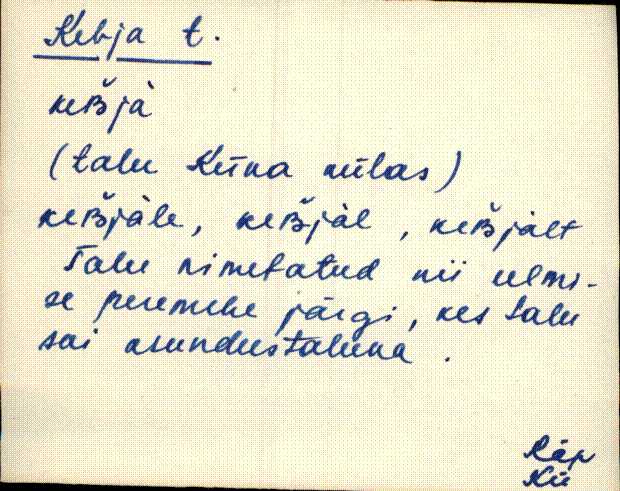 Kebja t.
keʙ̌jà
(talu Küka külas)
keʙ̌jàle, keʙ̌jàl, keʙ̌jàlt
Talu nimetatud nii eelmi-
se peremehe järgi, kes talu
sai asundustaluna.
Räp
Kü